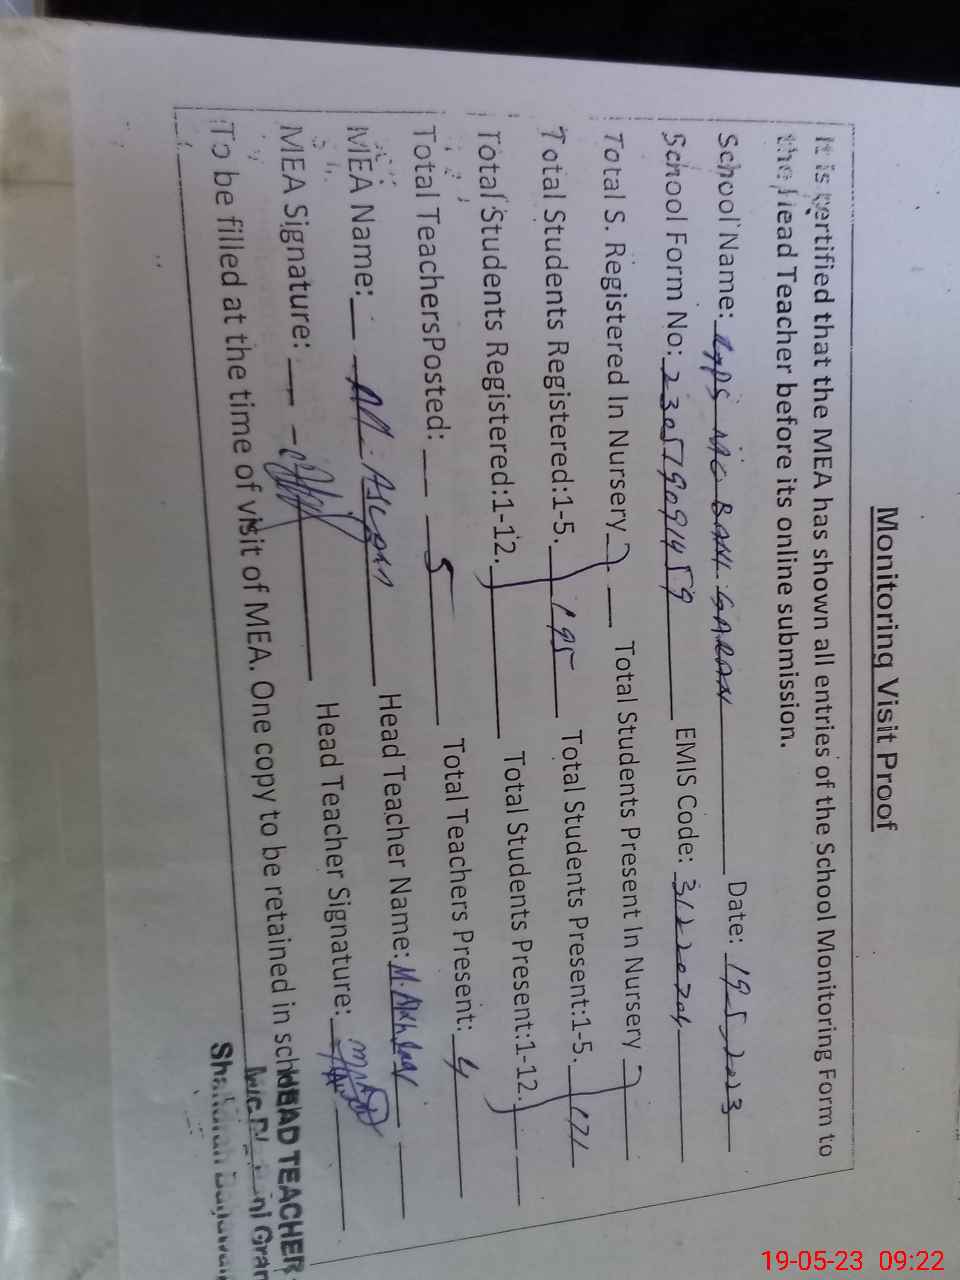 Monitoring Visit Proof
It is certified that the MEA has shown all entries of the School Monitoring Form to
the Head Teacher before its online submission.
School Name: MC BANI GARAN Date: 19-5-2023
School Form No: EMIS Code: 31220704
Total S. Registered In Nursery Total Students Present In Nursery
Total Students Registered:1-5. 195 Total Students Present:1-5. 171
Total Students Registered:1-12. Total Students Present:1-12.
Total TeachersPosted: 5 Total Teachers Present: 4
MEA Name: Head Teacher Name: M.
MEA Signature: Head Teacher Signature:
To be filled at the time of visit of MEA. One copy to be retained in
HEAD TEACHER
19-05-23 09:22